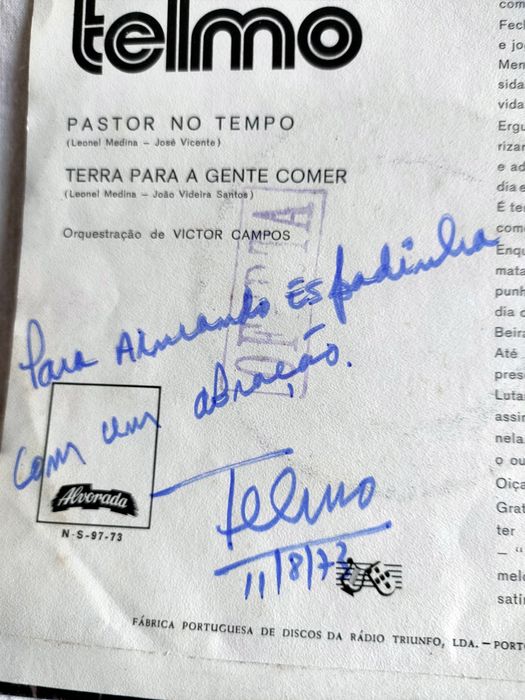 telmo
PASTOR NO TEMPO
(Leonel Medina – José Vicente)
TERRA PARA A GENTE COMER
(Leonel Medina – João Videira Santos)
Orquestração de VICTOR CAMPOS
OFERTA
Para Armando Espadinha
com um abração.
Telmo
11/8/73
Alvorada
N-S-97-73
FÁBRICA PORTUGUESA DE DISCOS DA RÁDIO TRIUNFO, LDA. – PORT
com
Fech
e jo
Men
sida
vida
Ergu
rizar
e ad
dia e
É ter
come
Enqu
mata
punh
dia d
Beira
Até
prese
Lutar
assir
nela
o ou
Oiça
Grat
ter
– "
melo
satir